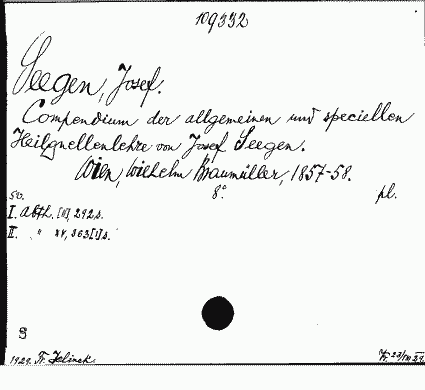 109332
Seegen, Josef.
Compendium der allgemeinen und speciellen
Heilquellenlehre von Josef Seegen.
Wien, Wilhelm Braumüller, 1857-58.
8° pl.
I. Abth. [III], 292 s.
II. " XV, 363 [1] s.
S
1929. Fr. Jelinek.